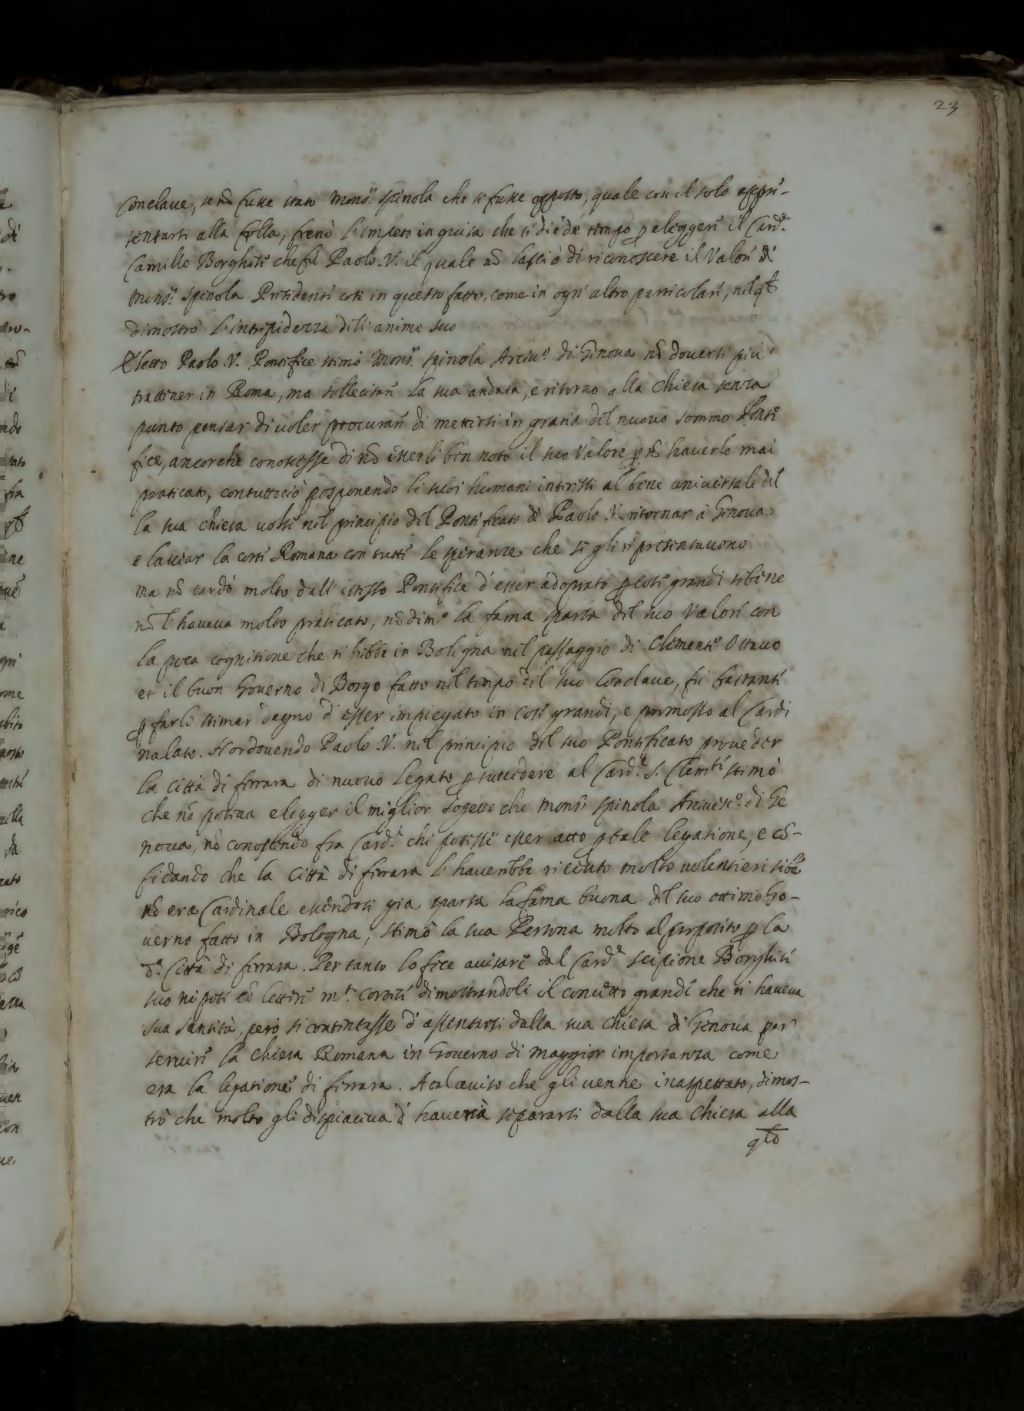 23
Conclave, se nõ fusse stato Mons.r Spinola che se fusse opposto, quale con il solo appre-
sentarsi alla folla, frenò l'impeto in guisa che si diede tempo p elegger il Card.l
Camillo Borghese che fù Paolo .V. il quale nõ lasciò di riconoscere il Valor di
Mons.r Spinola Presidente così in questo fatto, come in ogn' altro particolare, nel qĩ
dimostrò l'intrepidezza dell'animo suo
Eletto Paolo V. Pontefice stimò Mons.r Spinola Arciv.o di Genova nõ doversi più
trattener in Roma, ma sollecitar la sua andata, e ritorno alla Chiesa senza
punto pensar di voler procurar di mettersi in gratia del nuovo sommo Pãte
fice, ancorche conoscesse di nõ esserli ben noto il suo Valore p nõ haverlo mai
praticato, contuttociò posponendo li suoi humani interessi al bene universale del
la sua chiesa volse nel principio del Pontificato di Paolo .V. ritornar à Genova
e lasciar la corte Romana con tutte le speranze che se gli ripresentavono
ma nõ tardò molto dall' istesso Pontefice d'esser adoprato p cose grandi sebene
nõ l'haveva molto praticato, nõdim.o la fama sparsa del suo Valore con
la poca cognitione che n'hebbe in Bologna nel passaggio di Clemente Ottavo
et il buon Governo di Borgo fatto nel tempo del suo Conclave, fù bastante
p farlo stimar degno d'esser impiegato in cose grandi, e promosso al Cardi
nalato. Hor dovendo Paolo .V. nel principio del suo Pontificato proveder
la Città di ferrara di nuovo Legato p succedere al Card.l S. Clem.te stimò
che nõ poteva elegger il miglior sogetto che Mons.r Spinola Arcives.o di Ge
nova, nõ conoscendo fra Card.li chi potesse esser atto p tale legatione, e cõ-
fidando che la Città di ferrara l'haverebbe ricevuto molto volentieri sebẽ
nõ era Cardinale essendosi già sparsa la fama buona del suo ottimo Go-
verno fatto in Bologna, stimò la sua Persona molto al proposito p la
d.a Città di ferrara. Per tanto lo fece avisare dal Card.l Scipione Borghese
suo nipote cõ lettere m.to cortesi dimostrandoli il concetto grande che n' haveva
sua santità, però si contentasse d'assentarsi dalla sua chiesa di Genova per
servire la chiesa Romana in Governo di maggior importanza come
era la legatione di ferrara. A tal aviso che gli venne inaspettato, dimos-
trò che molto gli dispiaceva d' haversi à separarsi dalla sua chiesa alla
qlẽ